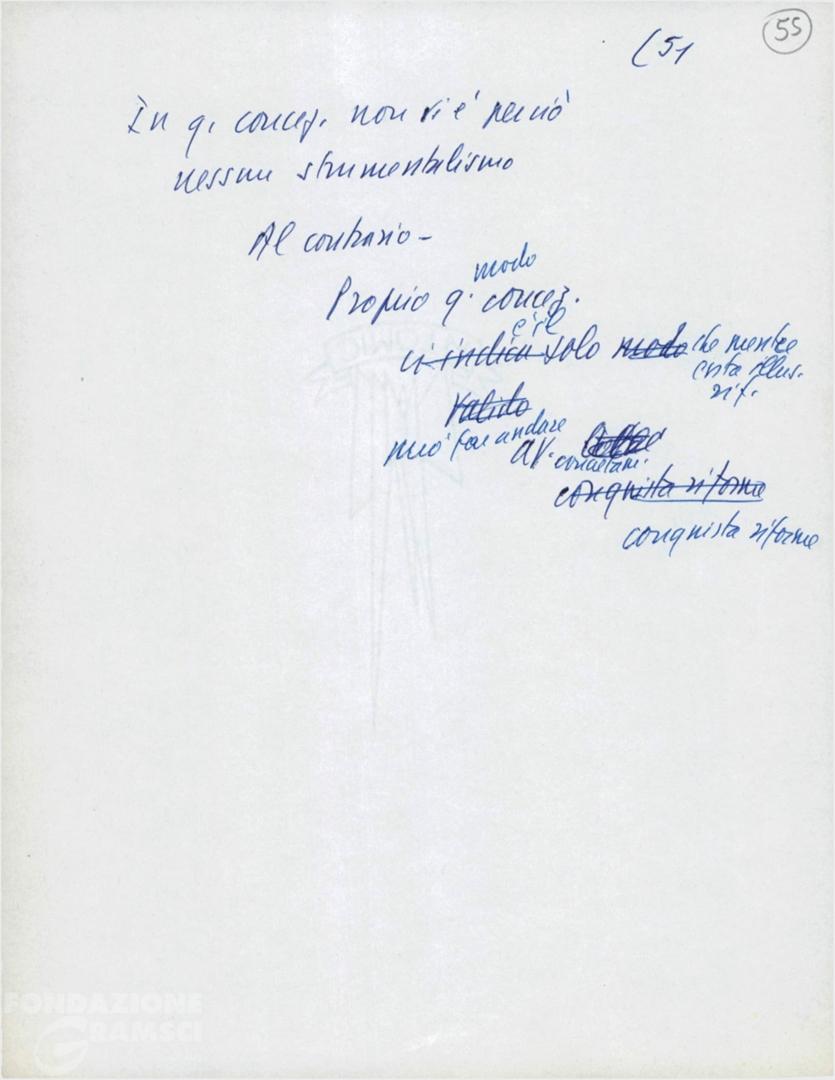 55
(51
In q. concez. non vi è perciò
nessun strumentalismo
Al contrario -
modo
Proprio q. concez.
è il
ci indica solo modo che mentre
critica illus.
rif.
valido
può far andare
av. concretam.
conquista riforme
conquista riforme
FONDAZIONE
GRAMSCI